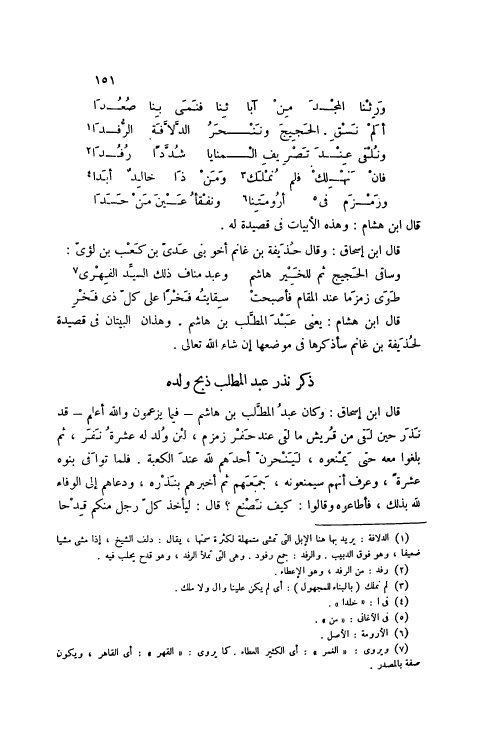 ١٥١
ورِثْنا المجْدَ مِنْ آبا ئِنا فنَمَى بِنا صُعُدَا
ألمْ نَسْقِ الحَجيجَ ونَنْحَرُ الدَّلَّافَةَ الرُّفُدا١
ونُلْقَى عِنْدَ تَصْريفِ الْمنايا شُدَّدًا رُفُدا٢
فانْ نَهْلِكْ فلم نُمْلَكْ٣ ومَنْ ذَا خالِدٌ أبَدا٤
وزَمْزَم فى٥ أرُومَتِنا٦ ونفْقأُ عَيْنَ مَنْ حَسَدَا
قال ابن هشام : وهذه الأبيات فى قصيدة له .
قال ابن إسحاق : وقال حُذيفة بن غانم أخو بنى عَدىّ بن كَعْب بن لؤىّ :
وساقى الحَجيج ثم للخَيْر هاشم وعبد مناف ذلك السيِّد الفِهْرى٧
طَوَى زمزما عند المقام فأصبحتْ سِقايتُه فَخْرًا على كلّ ذى فَخْرِ
قال ابن هشام : يعنى عَبْدَ المطَّلب بن هاشم . وهذان البيتان فى قصيدة
لحُذيفة بن غانم سأذكرها فى موضعها إن شاء الله تعالى .
ذكر نذر عبد المطلب ذبح ولده
قال ابن إسحاق : وكان عبدُ المطَّلب بن هاشم – فيما يزعمون والله أعلم – قد
نَذَر حين لَقى من قُريش ما لقى عند حَفْر زمزم ، لئن وُلد له عشرةُ نَفَر ، ثم
بلغوا معه حتى يَمْنعوه ، لَيَنْحرنّ أحدَهم لله عند الكعبة . فلما توافى بنوه
عشرةً ، وعرف أنهم سيمنعونه ، جَمَعَهم ثم أخبرهم بنَذْره ، ودعاهم إلى الوفاء
لله بذلك ، فأطاعوه وقالوا : كيف نَصْنع ؟ قال : ليأخذ كلّ رجل منكم قِدْحا
(١) الدلافة : يريد بها هنا الإبل التى تمشى متمهلة لكثرة سمنها ، يقال : دلف الشيخ ، إذا مشى مشيا
ضعيفا ، وهو فوق الدبيب . والرفد : جمع رفود . وهى التى تملأ الرفد ، وهو قدح يحلب فيه .
(٢) رفد : من الرفد ، وهو الإعطاء .
(٣) لم نملك ( بالبناء للمجهول ) : أى لم يكن علينا وال ولا ملك .
(٤) فى ا : « خلدا » .
(٥) فى الأغانى : « من » .
(٦) الأرومة : الأصل .
(٧) ويروى : « الغمر » : أى الكثير العطاء . كما يروى : « القهر » : أى القاهر ، ويكون
صفة بالمصدر .